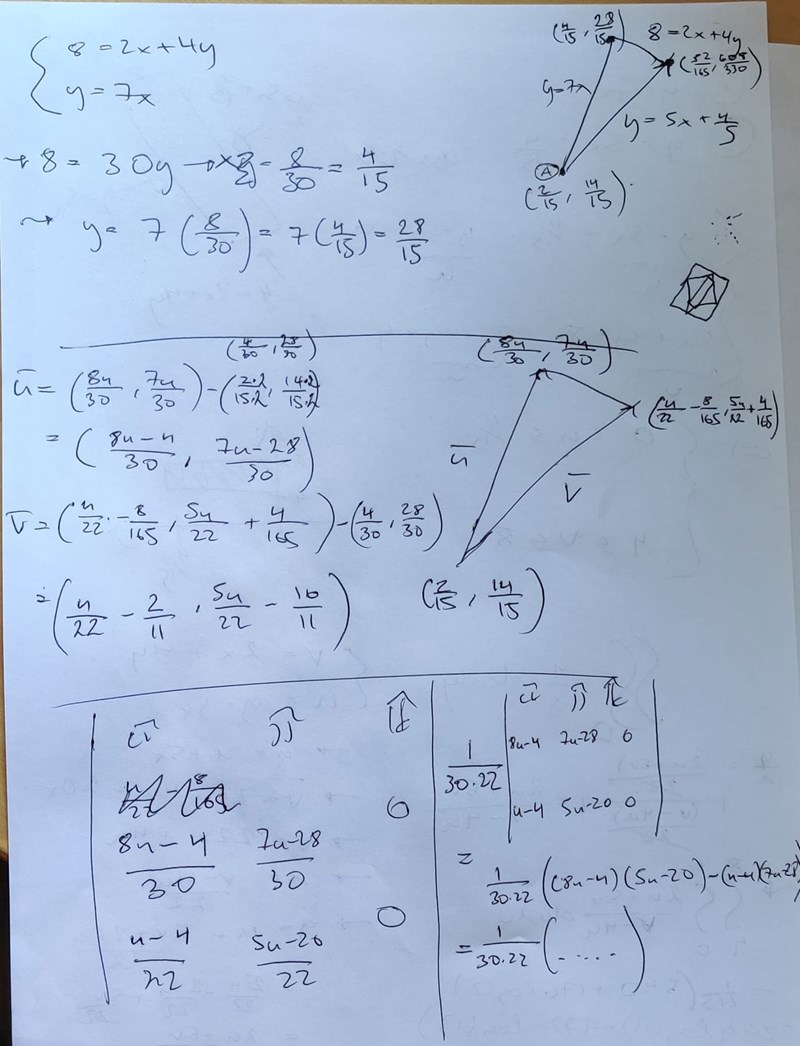 8 = 2x + 4y
y = 7x
→ 8 = 30y → x = 8/30 = 4/15
→ y = 7 (8/30) = 7 (4/15) = 28/15
(4/15, 28/15)
8 = 2x + 4y
y = 7x
y = 5x + 4/5
A
(2/15, 14/15)
(4/30, 28/30)
ū = (8u/30, 7u/30) - (2·2/15·2, 14·2/15·2)
= (8u-4/30, 7u-28/30)
v̄ = (u/22 - 8/165, 5u/22 + 4/165) - (4/30, 28/30)
= (u/22 - 2/11, 5u/22 - 10/11)
(8u/30, 7u/30)
(u/22 - 8/165, 5u/22 + 4/165)
ū
v̄
(2/15, 14/15)
0
8u-4/30 7u-28/30
0
u-4/22 5u-20/22
1/30·22
8u-4 7u-28 0
u-4 5u-20 0
= 1/30·22 ((8u-4)(5u-20)-(u-4)(7u-28))
= 1/30·22 (.....)